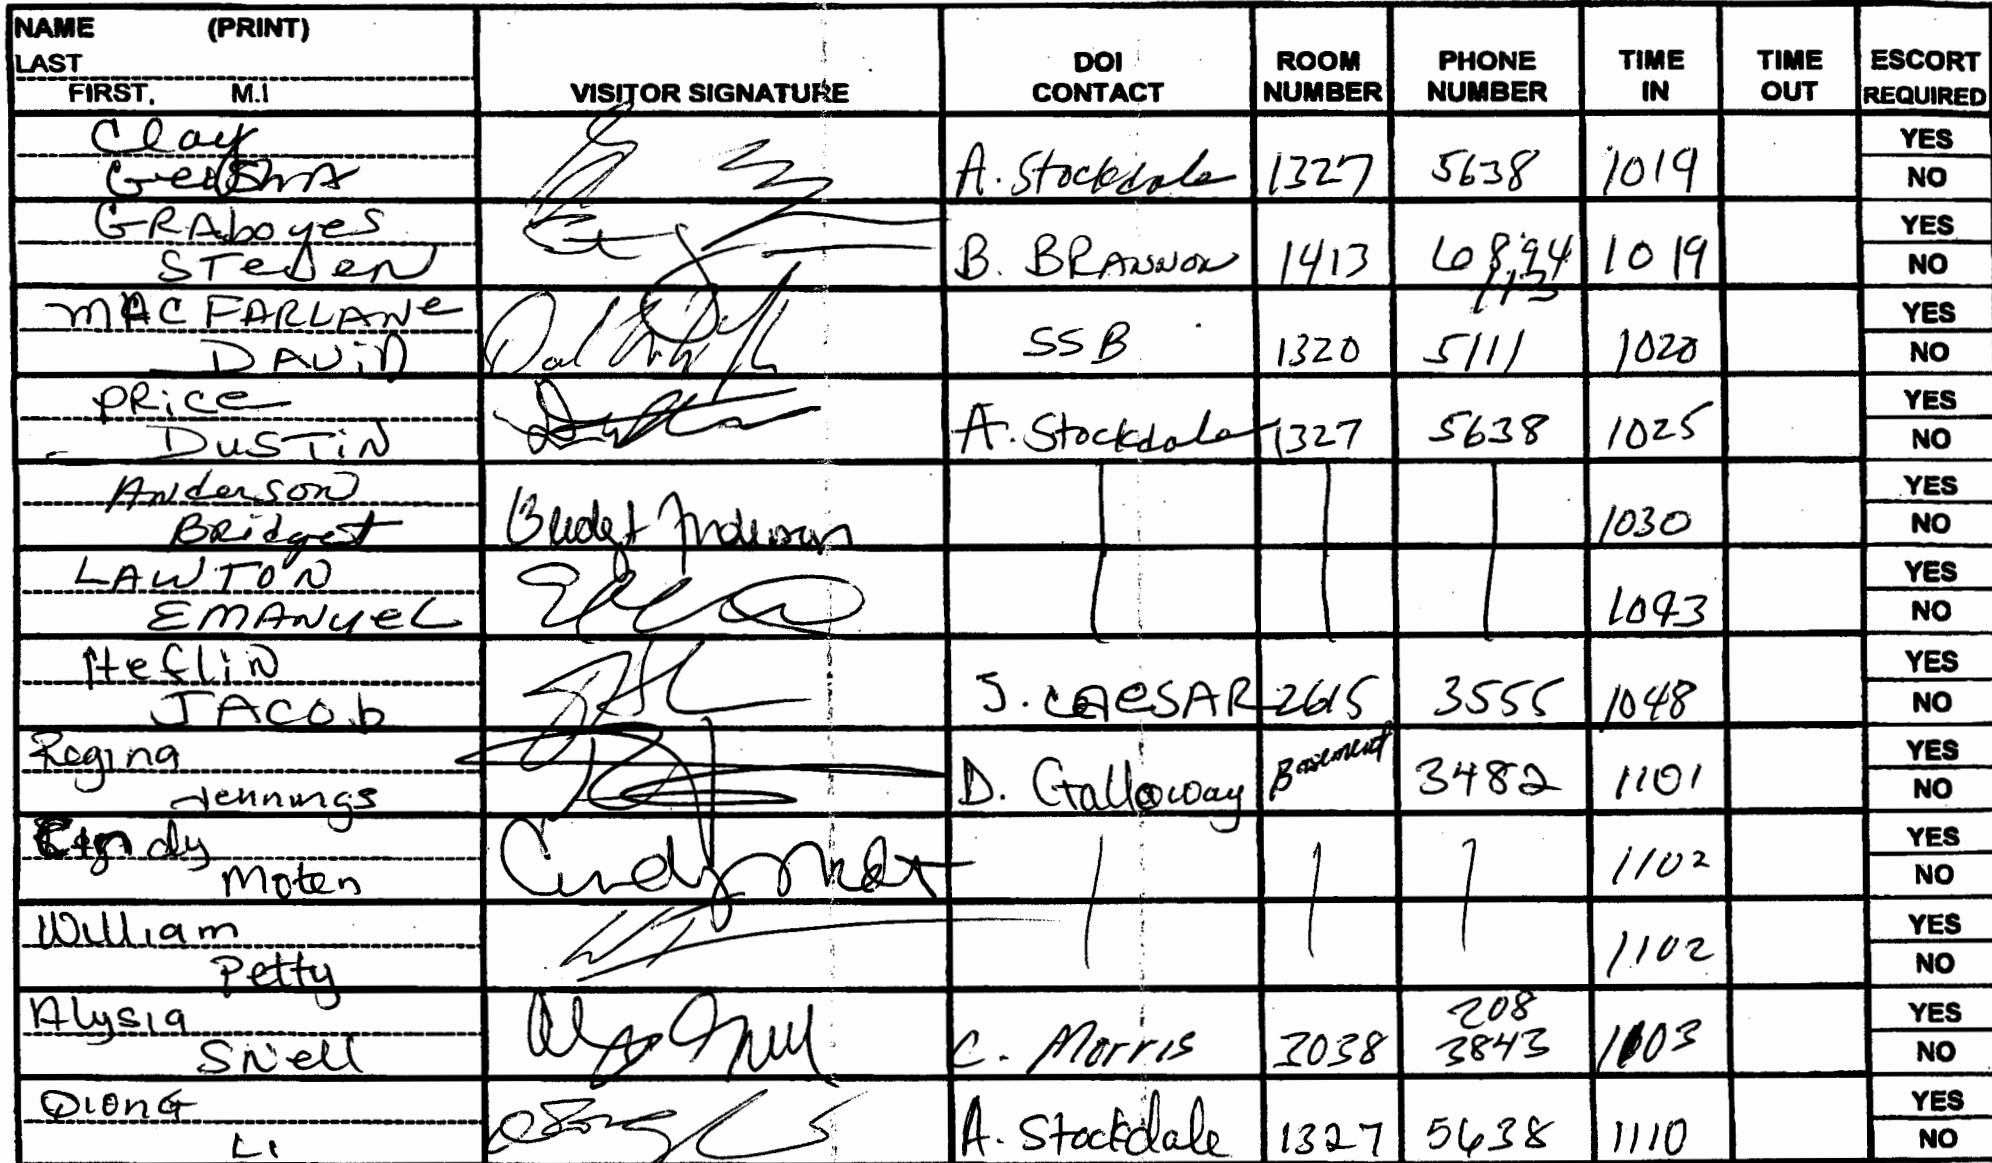 NAME (PRINT)
LAST
FIRST, M.I
VISITOR SIGNATURE
DOI CONTACT
ROOM NUMBER
PHONE NUMBER
TIME IN
TIME OUT
ESCORT REQUIRED
Clay
A. Stockdale 1327 5638 1019 YES NO
GRAboyes
STeven B. BRANNON 1413 1019 YES NO
MACFARLANe
DAViD SSB 1320 5111 1020 YES NO
PRice
DUSTiN A. Stockdale 1327 5638 1025 YES NO
Anderson
Bridget Anderson 1030 YES NO
LAWTON
EMANUEL 1043 YES NO
Heflin
JACOb J. CAESAR 2615 3555 1048 YES NO
Regina
Jennings D. Galloway Basement 3482 1101 YES NO
Cindy
Moten Cindy Moten 1102 YES NO
William
Petty 1102 YES NO
Alysia
Snell C. Morris 3038 208 3843 1103 YES NO
QionG
Li A. Stockdale 1327 5638 1110 YES NO